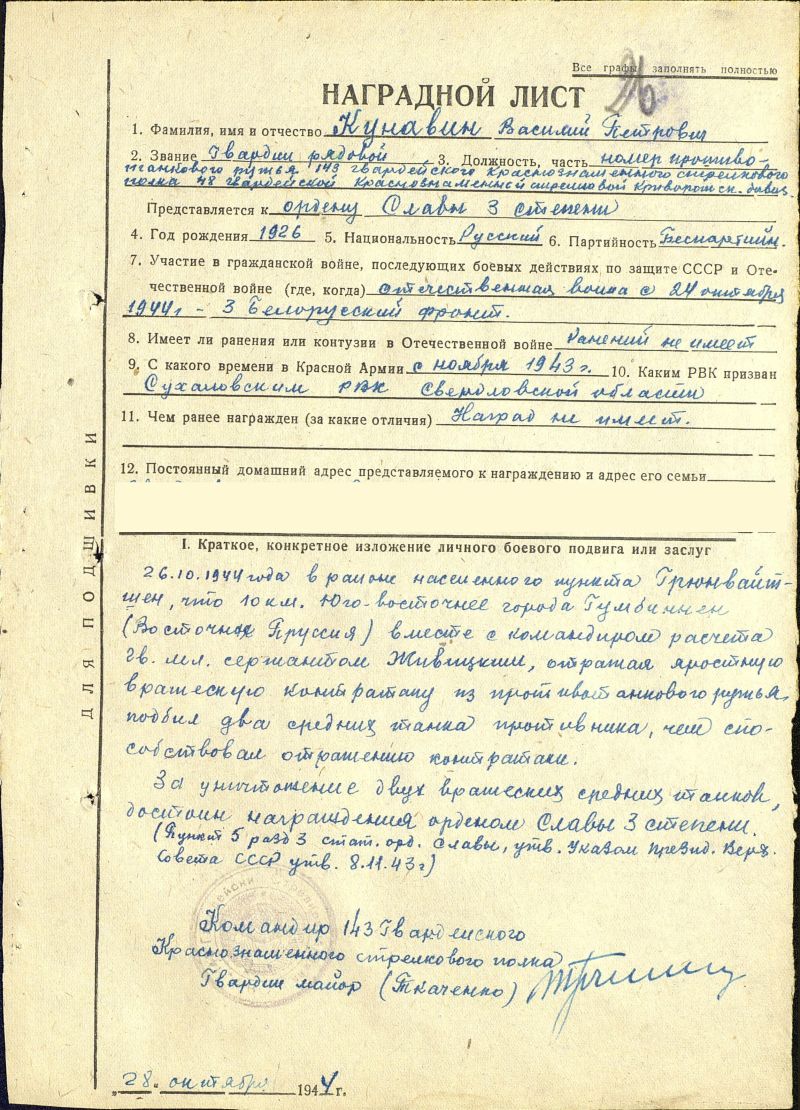 Все графы заполнять полностью
26
НАГРАДНОЙ ЛИСТ
1. Фамилия, имя и отчество Кунавин Василий Петрович
2. Звание Гвардии рядовой 3. Должность, часть номер противо-
танкового ружья 143 гвардейского Краснознаменного стрелкового
полка 48 гвардейской Краснознаменный стрелковой Криворожск. дивиз.
Представляется к ордену Славы 3 степени
4. Год рождения 1926 5. Национальность Русский 6. Партийность Беспартийн.
7. Участие в гражданской войне, последующих боевых действиях по защите СССР и Оте-
чественной войне (где, когда) отечественная война с 24 октября
1944г - 3 Белорусский фронт.
8. Имеет ли ранения или контузии в Отечественной войне Ранений не имеет
9. С какого времени в Красной Армии с ноября 1943 г. 10. Каким РВК призван
Сухаловским РВК Свердловской области
11. Чем ранее награжден (за какие отличия) Наград не имеет.
12. Постоянный домашний адрес представляемого к награждению и адрес его семьи
I. Краткое, конкретное изложение личного боевого подвига или заслуг
26.10.1944 года в районе населенного пункта Грюнвайт-
шен, что 10 км. Юго-восточнее города Гумбиннен
(Восточная Пруссия) вместе с командиром расчета
Гв. мл. сержантом Живицким, отражая яростную
вражескую контратаку из противотанкового ружья,
подбил два средних танка противника, чем спо-
собствовал отражению контратаки.
За уничтожение двух вражеских средних танков,
достоин награждения орденом Славы 3 степени.
(Пункт 5 разд 3 стат. орд. Славы, утв. Указом Презид. Верх.
Совета СССР утв. 8.11.43 г)
Командир 143 Гвардейского
Краснознаменного стрелкового полка
Гвардии майор (Ткаченко)
"28" октября 1944 г.
ДЛЯ ПОДШИВКИ